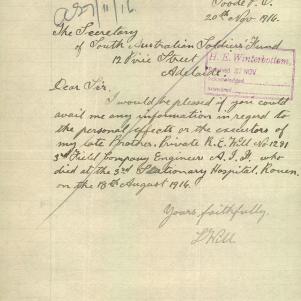 Poole P.O.
20th Nov. 1916.
The Secretary
of South Australian Soldiers Fund
12 Pirie Street
Adelaide.
H. E. Winterbottom,
27 NOV
Dear Sir,
I would be pleased if you could
avail me any information in regard to
the personal effects or the executors of
my late Brother, Private R. E. Will No 1291
3rd Field Company Engineers A.I.F. who
died at the 3rd Stationary Hospital, Rouen.
on the 18th August 1916.
Yours faithfully
L Will